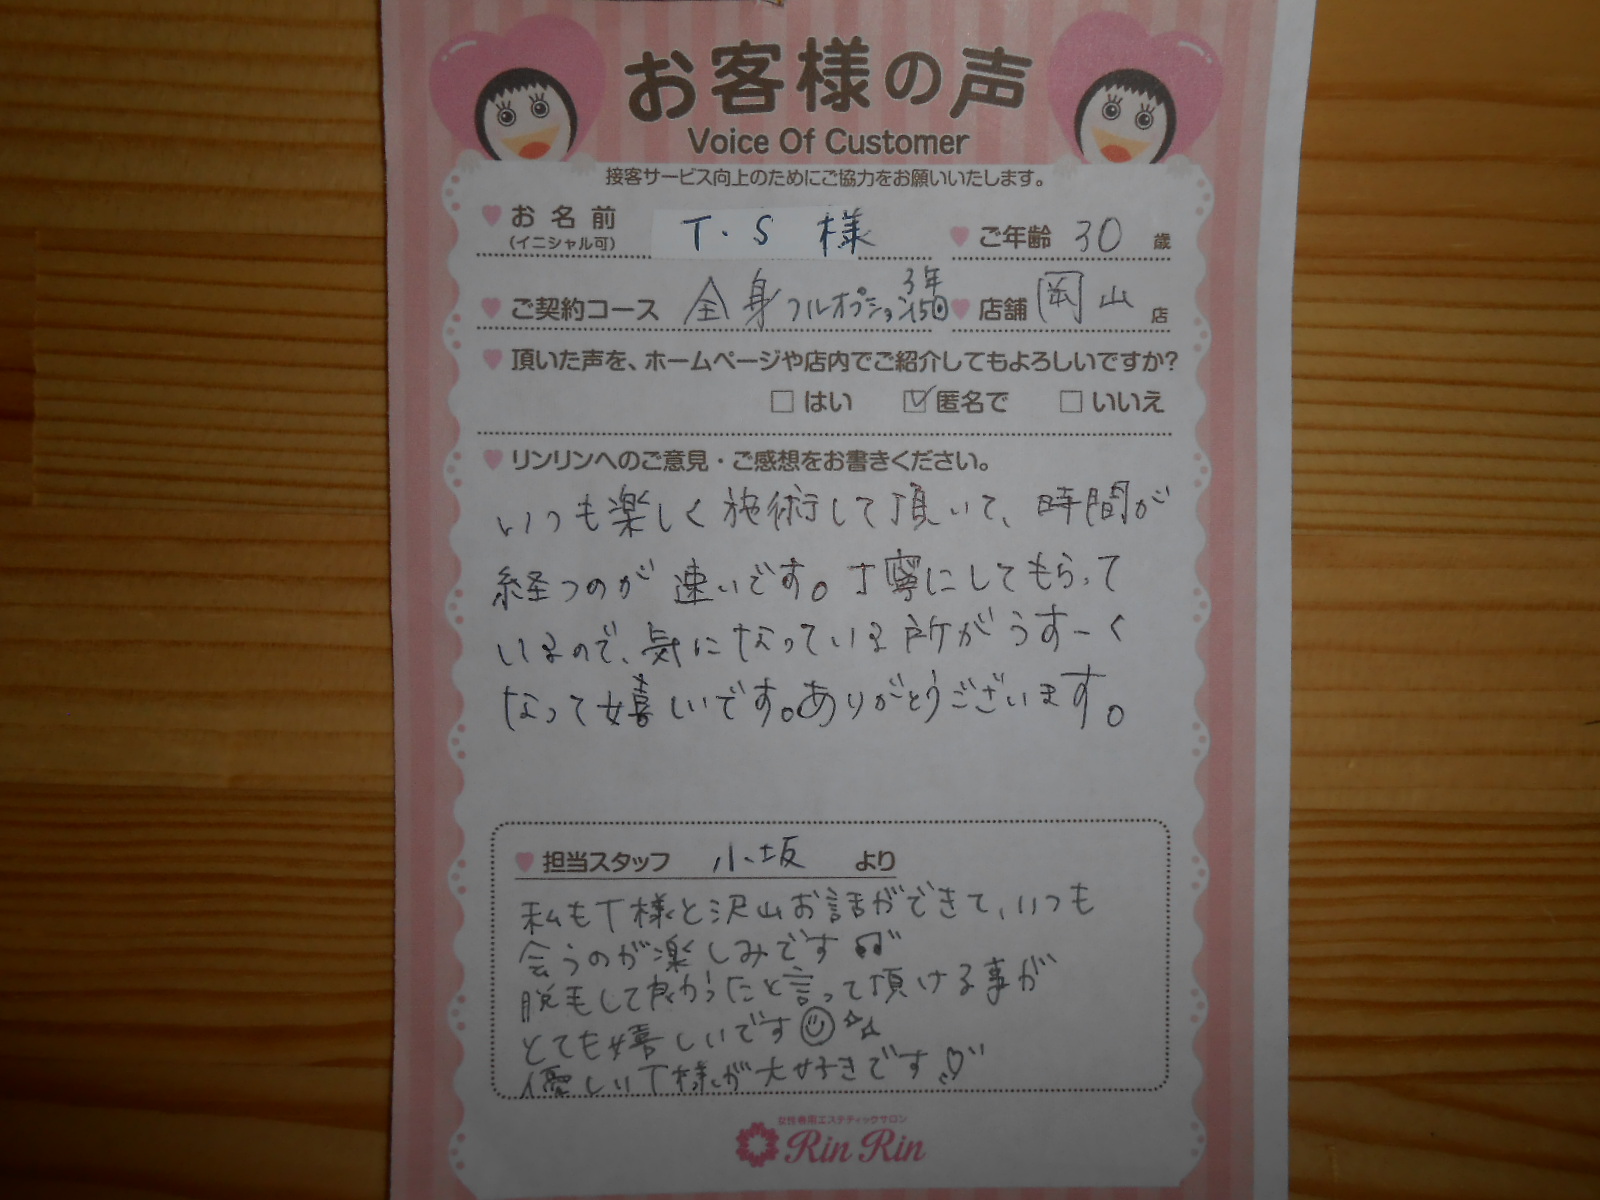 お客様の声
Voice Of Customer
接客サービス向上のためにご協力をお願いいたします。
お名前 T・S 様 ご年齢 30 歳
（イニシャル可）
ご契約コース 全身フルオプション3年15回 店舗 岡山 店
頂いた声を、ホームページや店内でご紹介してもよろしいですか?
□はい ☑匿名で □いいえ
リンリンへのご意見・ご感想をお書きください。
いつも楽しく施術して頂いて、時間が
経つのが速いです。丁寧にしてもらって
いるので、気になっている所がうすーく
なって嬉しいです。ありがとうございます。
担当スタッフ 小坂 より
私もT様と沢山お話ができて、いつも
会うのが楽しみです
脱毛して良かったと言って頂ける事が
とても嬉しいです
優しいT様が大好きです
女性専用エステティックサロン
Rin Rin